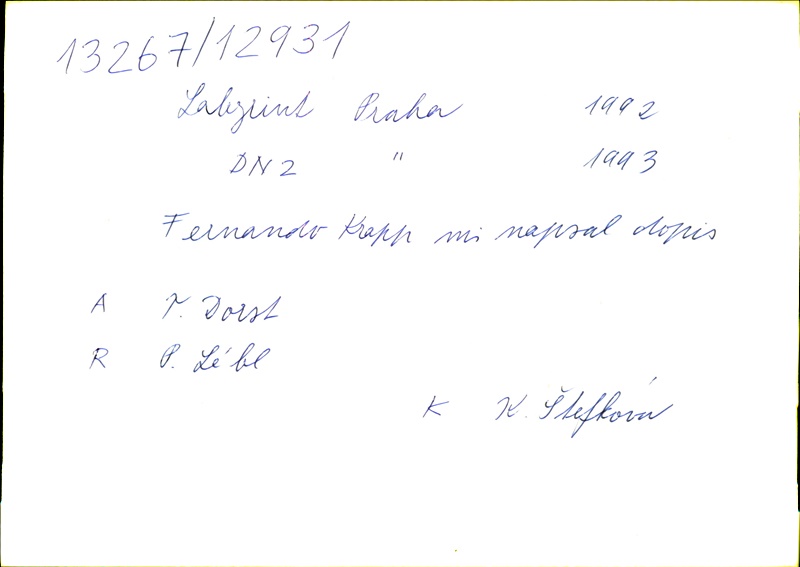 13267/12931
Labyrint Praha 1992
DNZ " 1993
Fernando Krapp mi napsal dopis
A T. Dorst
R P. Lébl
K K. Štefková